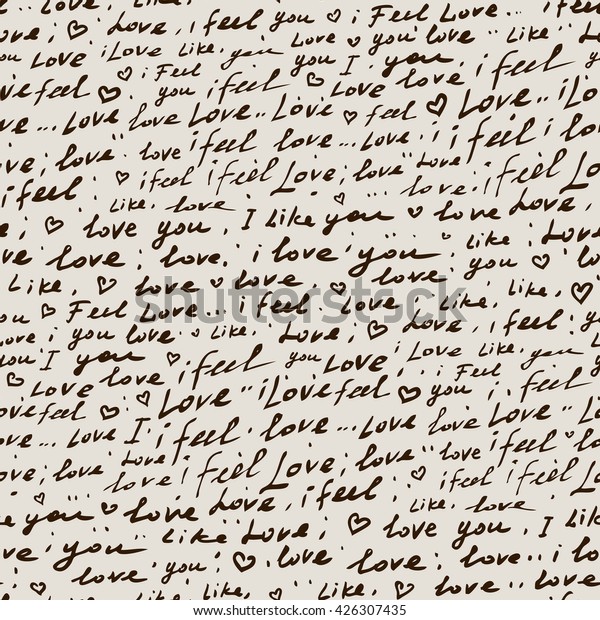 love, i Love, i feel you ♡ i Feel Love... i feel
love; i Love Like, you Love ♡ you love Like, i
♡ i Feel you i feel you I you.
ove feel ♡ you i feel ♡ Love love i feel
ve... Love Love.. Love ♡ feel ♡ Love.. i Love
ove; love love i feel love... Love i i feel i lo
i feel ♡ i feel i feel Love; love Love; i feel Love
Like, love ... love
; ♡ love you, I Like you ♡ love Love,
ove love; love, i love you Like; Love;
Like, ♡ love ♡ love, love you ♡ lo
ou ♡ Feel Love ... i feel love; Like, Like, ♡
ove i you love ♡ Like, Love; ♡ Love, i feel
you I you ♡ i feel you Love i Love Like, you
♡ Love love i feel .. i Love feel ♡ you i Feel i feel
Love feel ♡ Love you love Love.. Lo
ve... Love I i feel love... Love
ove; love Love i feel Love; love Love; i feel ♡ i feel
♡ love ♡ i feel i feel Love
e you ♡ love Love, i feel Like, love
ove you Like Love; ♡ love you, I Lik
love, you; ♡ love love; love.. i lo
♡ Like, ♡ Like, ♡ love .. love
shutterstock
shutterstock.com · 426307435